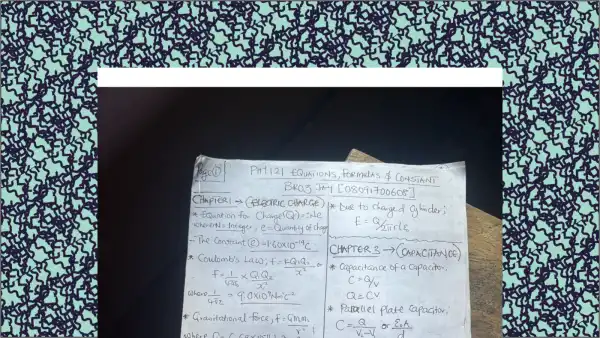 Pg(1)
PHY121 EQUATIONS, FORMULAS & CONSTANT
BRO.S JAY [08091700608]
CHAPTER 1 → (ELECTRIC CHARGE)
* Equation for Charge (Q) = ±Ne
where N = Integer, e = Quantity of charge
- The Constant (e) = 1.60×10⁻¹⁹C
* Coulomb's Law; F = KQ₁Q₂/x²
F = 1/4πε × Q₁Q₂/x²
where 1/4πε = 9.0×10⁹
* Gravitational force, F = GMm/x²;
where G =
* Due to charged Cylinder;
E = Q/2πrLε
CHAPTER 3 → (CAPACITANCE)
* Capacitance of a Capacitor.
C = Q/V
Q = CV
* Parallel Plate Capacitor;
C = Q/V₁-V₂ or ε₀A/d